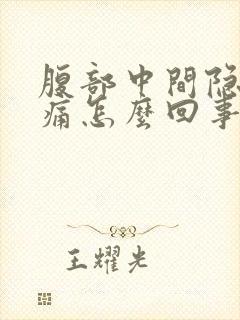 腹部中間隐
痛怎麼回事
王耀光